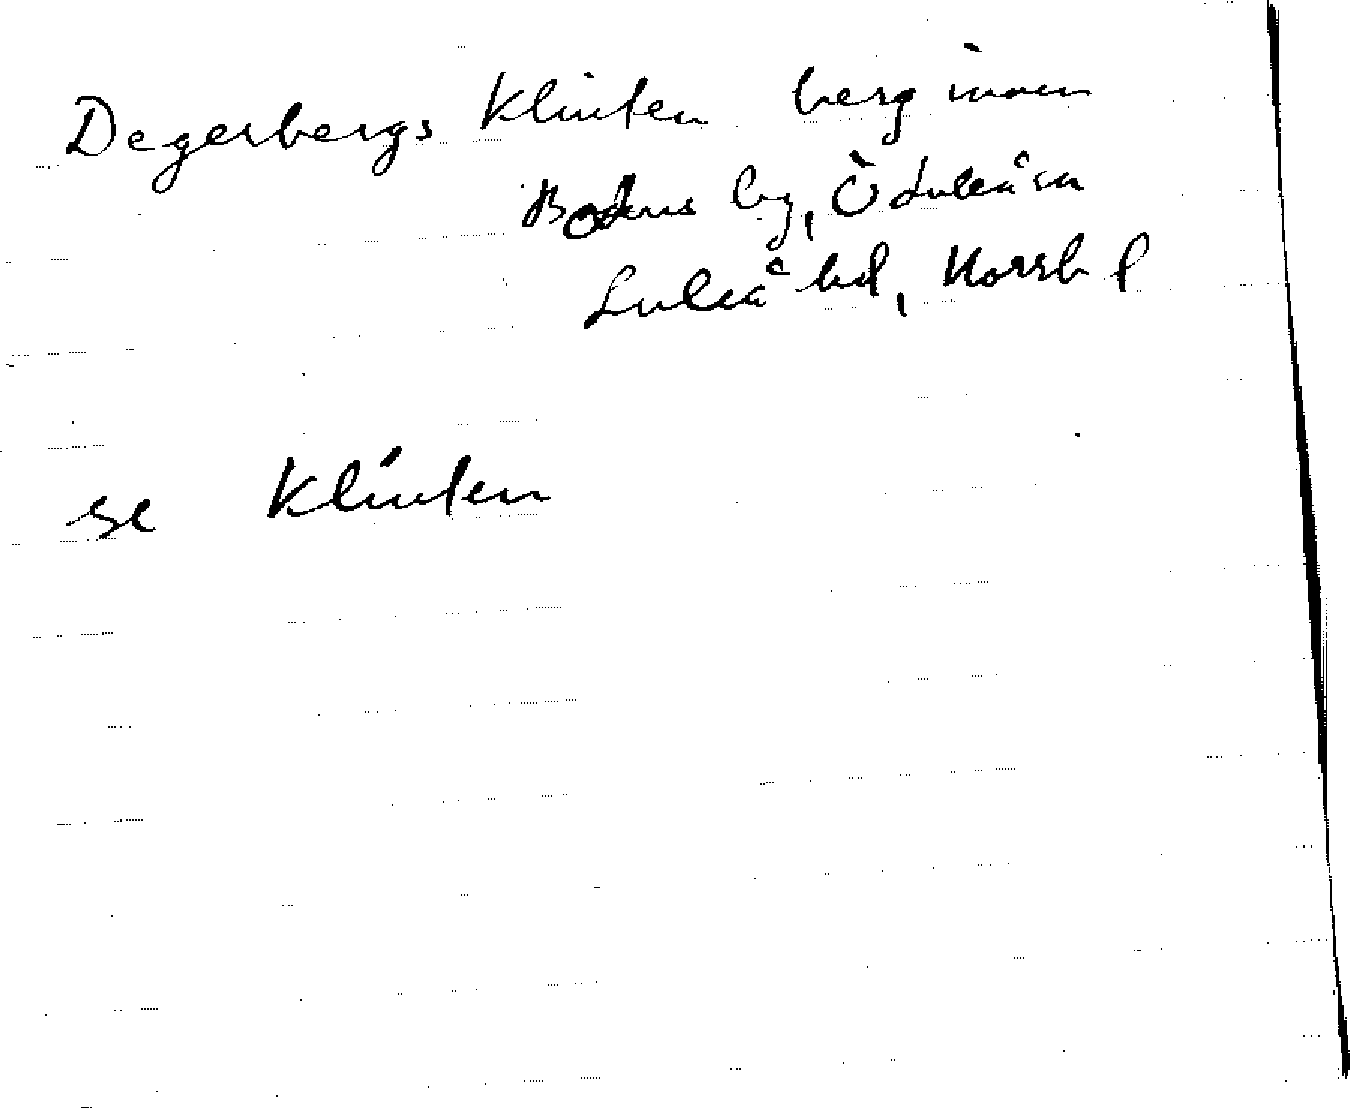 Degerbergs Klinten berg inom
Bodens by, Ö Luleå sn
Luleå hd, Norrb l
se Klinten